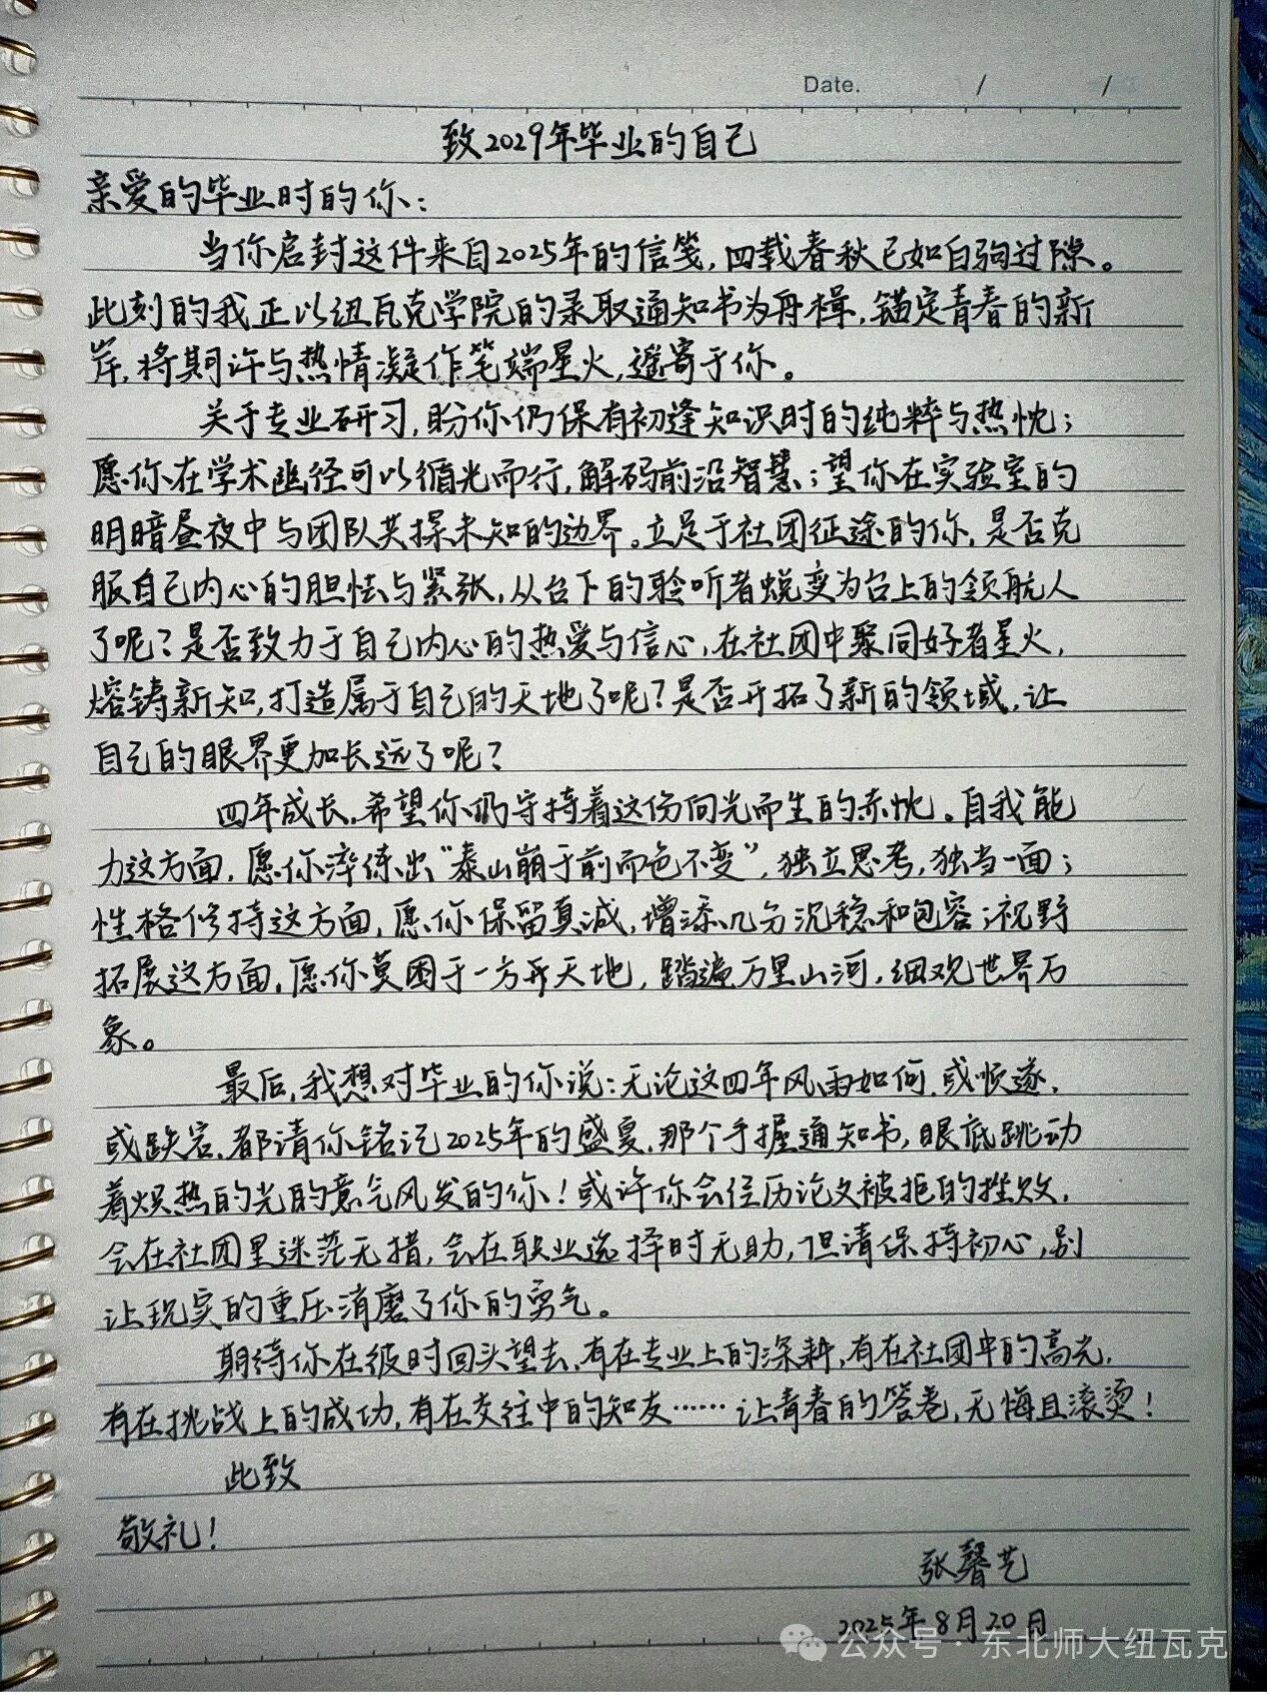 Date. / /
致2029年毕业的自己
亲爱的毕业时的你：
当你启封这件来自2025年的信笺，四载春秋已如白驹过隙。
此刻的我正以纽瓦克学院的录取通知书为舟楫，锚定青春的新
岸，将期许与热情凝作笔端星火，遥寄于你。
关于专业研习，盼你仍保有初逢知识时的纯粹与热忱；
愿你在学术幽径可以循光而行，解码前沿智慧；望你在实验室的
明暗昼夜中与团队共探未知的边界。立足于社团征途的你，是否克
服自己内心的胆怯与紧张，从台下的聆听者蜕变为台上的领航人
了呢？是否致力于自己内心的热爱与信心，在社团中聚同好者星火，
熔铸新知，打造属于自己的天地了呢？是否开拓了新的领域，让
自己的眼界更加长远了呢？
四年成长，希望你仍守持着这份向光而生的赤忱。自我能
力这方面，愿你淬练出“泰山崩于前而色不变”，独立思考，独当一面；
性格修持这方面，愿你保留真诚，增添几分沉稳和包容；视野
拓展这方面，愿你莫困于一方天地，踏遍万里山河，细观世界万
象。
最后，我想对毕业的你说：无论这四年风雨如何，或顺遂，
或跌宕，都请你铭记2025年的盛夏，那个手握通知书，眼底跳动
着炽热的光的意气风发的你！或许你会经历论文被拒的挫败，
会在社团里迷茫无措，会在职业选择时无助，但请保持初心，别
让现实的重压消磨了你的勇气。
期待你在彼时回头望去，有在专业上的深耕，有在社团中的高光，
有在挑战上的成功，有在交往中的知友……让青春的答卷，无悔且滚烫！
此致
敬礼！
张馨艺
2025年8月20日
公众号·东北师大纽瓦克